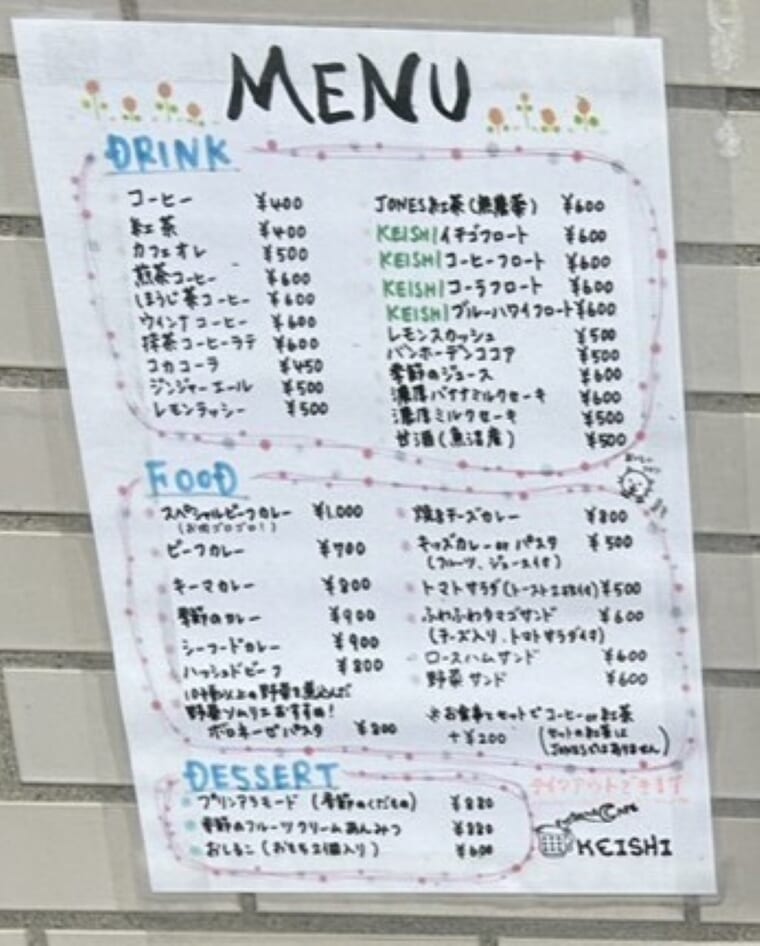 MENU
DRINK
コーヒー ¥400
紅茶 ¥400
カフェオレ ¥500
煎茶コーヒー ¥600
ほうじ茶コーヒー ¥600
ウインナコーヒー ¥600
抹茶コーヒーラテ ¥600
コカコーラ ¥450
ジンジャーエール ¥500
レモンラッシー ¥500
JONES紅茶(無農薬) ¥600
KEISHIイチゴフロート ¥600
KEISHIコーヒーフロート ¥600
KEISHIコーラフロート ¥600
KEISHIブルーハワイフロート ¥600
レモンスカッシュ ¥500
バンホーデンココア ¥500
季節のジュース ¥600
濃厚バナナミルクセーキ ¥600
濃厚ミルクセーキ ¥500
甘酒(魚沼産) ¥500
FOOD
スペシャルビーフカレー ¥1,000
(お肉ゴロゴロ!)
ビーフカレー ¥700
キーマカレー ¥800
季節のカレー ¥900
シーフードカレー ¥900
ハッシュドビーフ ¥800
10種以上の野菜を煮込んだ
野菜ソムリエおすすめ!
ボロネーゼパスタ ¥800
焼きチーズカレー ¥800
キッズカレーorパスタ ¥500
(フルーツ、ジュース付)
トマトサラダ(トースト付) ¥500
ふわふわタマゴサンド ¥600
(チーズ入り、トマトサラダ付)
ロースハムサンド ¥600
野菜サンド ¥600
※お食事とセットでコーヒーor紅茶
+¥200
(セットの紅茶は
JONESではありません)
DESSERT
プリンアラモード(季節のくだもの) ¥880
季節のフルーツクリームあんみつ ¥880
おしるこ(おもち2個入り) ¥600
テイクアウトできます
CAFE
KEISHI